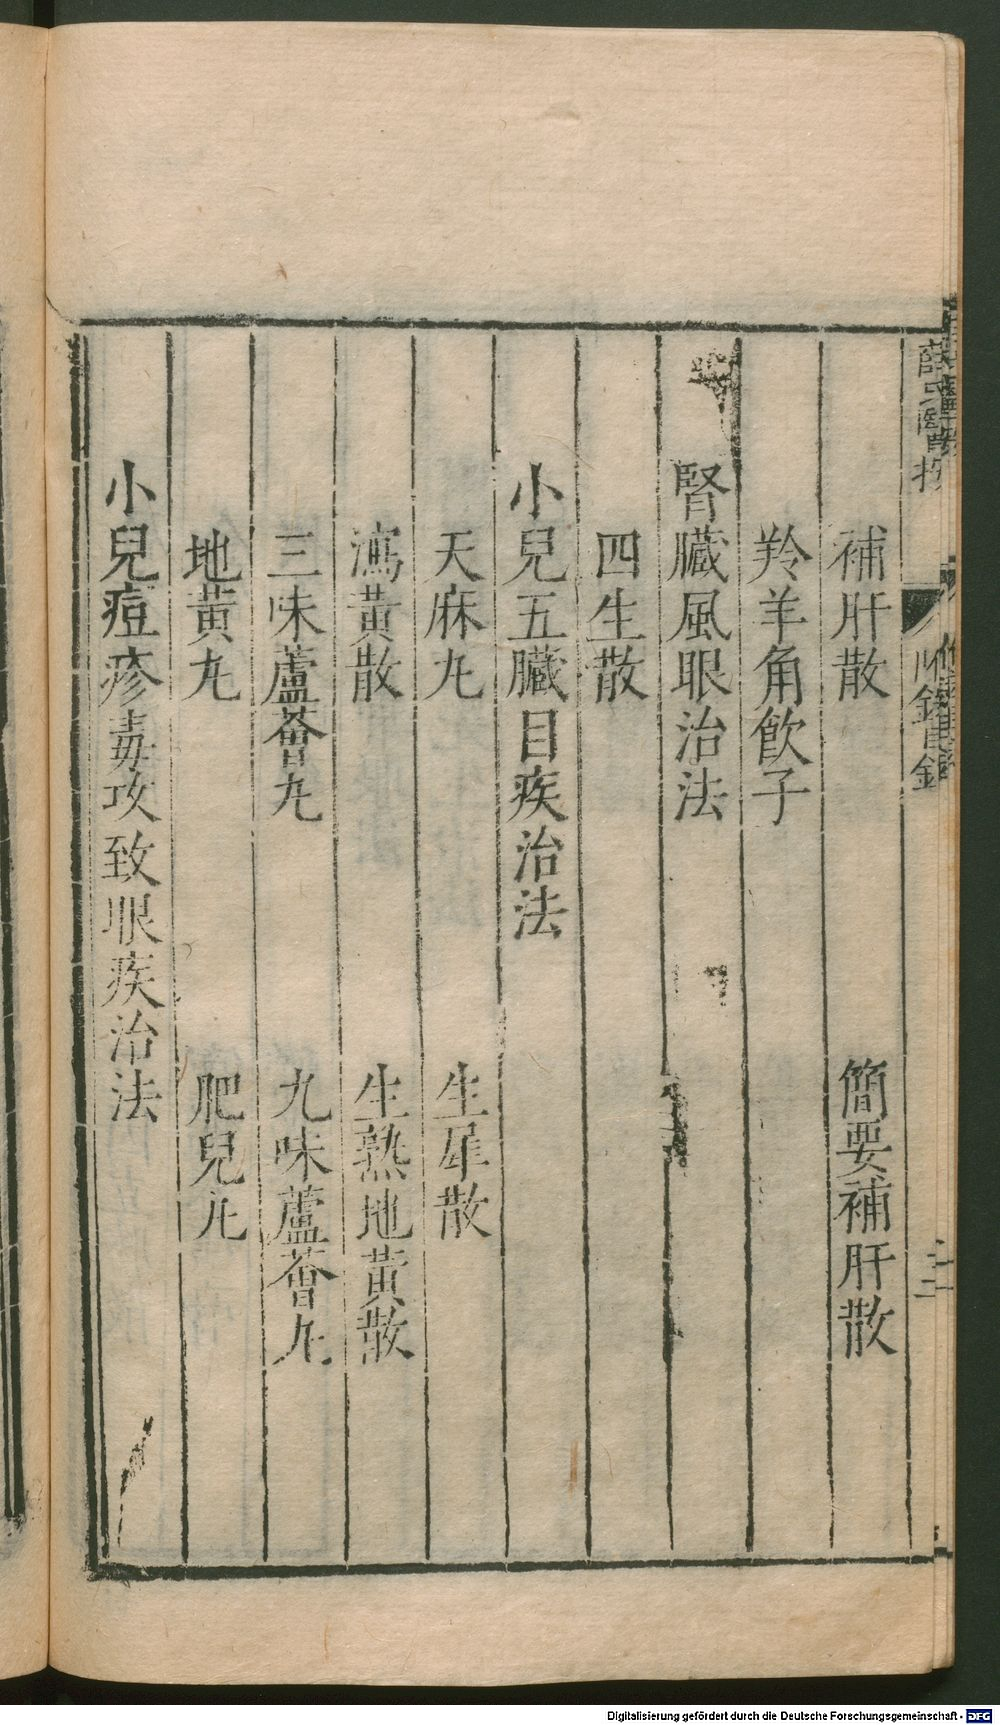 薛氏醫按
補肝散　簡要補肝散
羚羊角飲子
腎臟風眼治法
四生散
小兒五臟目疾治法
天麻丸　生犀散
瀉黃散　生熟地黃散
三味蘆薈丸　九味蘆薈丸
地黃丸　肥兒丸
小兒痘疹毒攻致眼疾治法
Digitalisierung gefördert durch die Deutsche Forschungsgemeinschaft - DFG